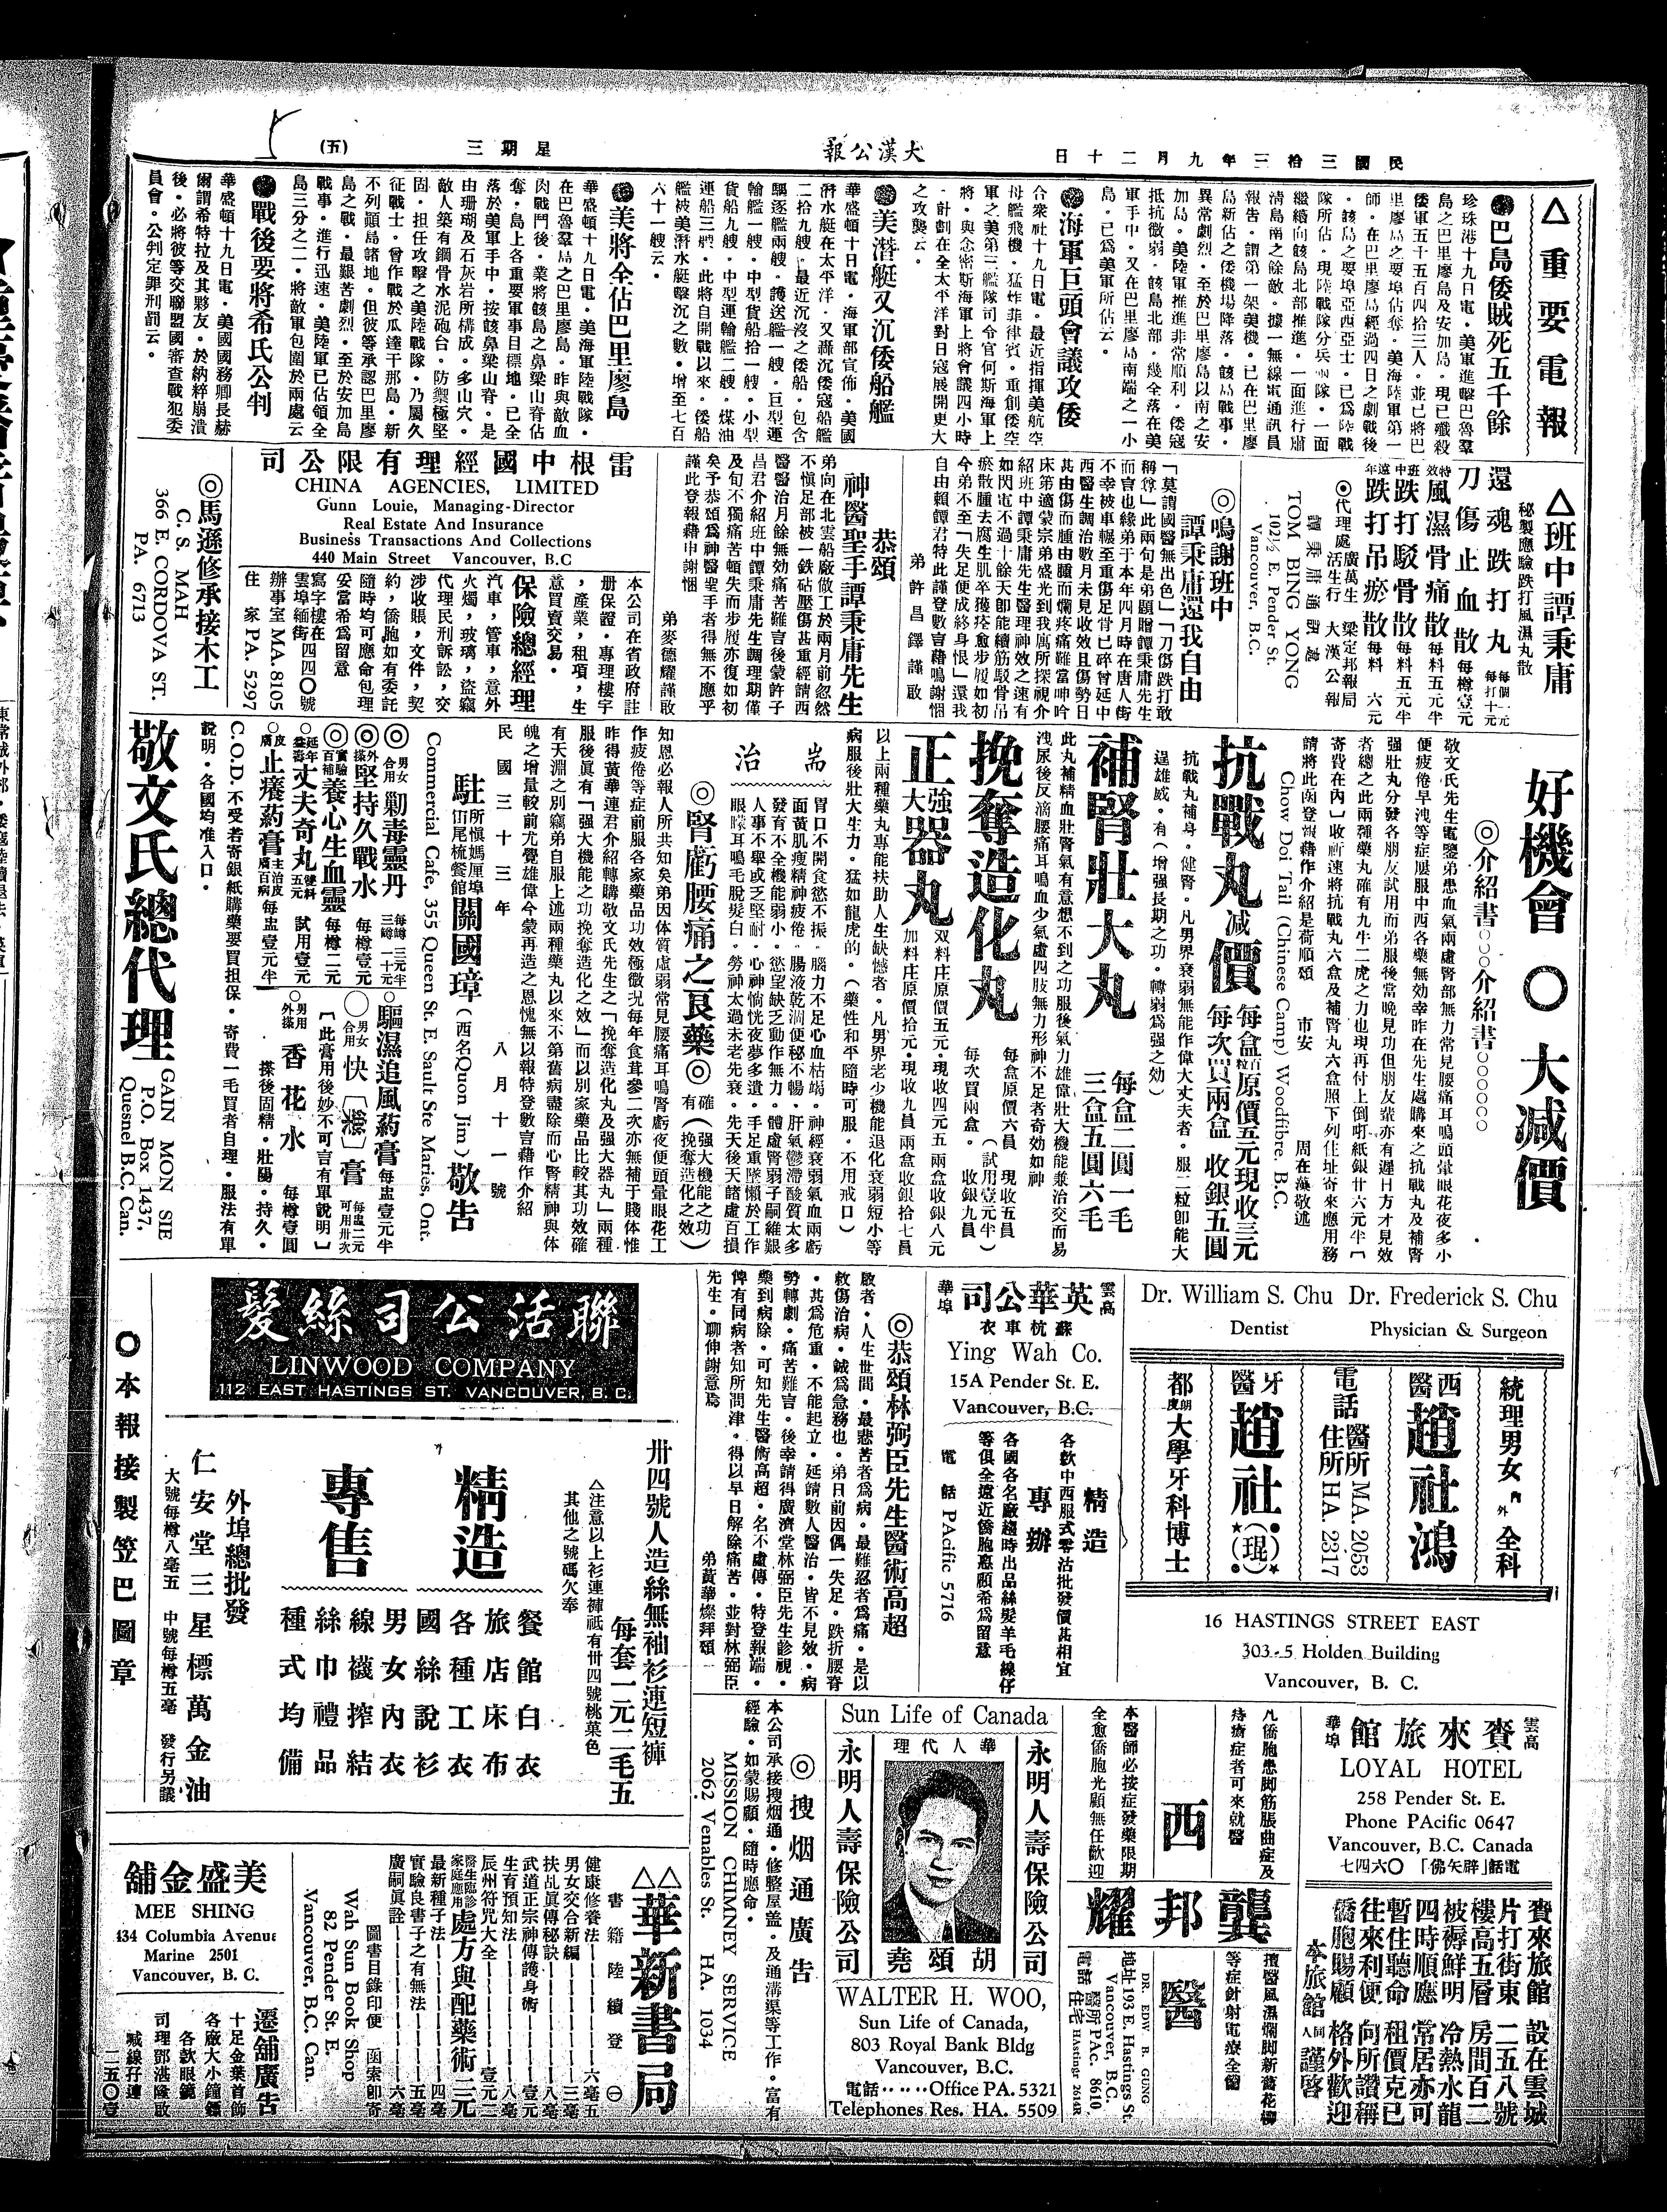 民國三拾三年九月二十日
大漢公報
星期三
(五)
△重要電報
●巴島倭賊死五千餘
珍珠港十九日電·美軍進擊巴魯羣
島之巴里廖島及安加島·現已殲殺
倭軍五千五百四拾三人·並已將巴
里廖島之要埠佔奪·美海陸軍第一
師·在巴里廖島經過四日之劇戰後
·該島之要埠亞西亞士·已爲陸戰
隊所佔·現陸戰隊分兵兩隊·一面
繼續向該島北部推進·一面進行肅
清島南之餘敵·據一無線電通訊員
報告·謂第一架美機·已在巴里廖
島新佔之倭機場降落·該島戰事·
異常劇烈·至於巴里廖島以南之安
加島·美陸軍推進非常順利·倭寇
抵抗微弱·該島北部·幾全落在美
軍手中·又在巴里廖島南端之一小
島·已爲美軍所佔云·
●海軍巨頭會議攻倭
合衆社十九日電·最近指揮美航空
母艦飛機·猛炸菲律賓·重創倭空
軍之美第三艦隊司令官何斯海軍上
將·與念密斯海軍上將會議四小時
·計劃在全太平洋對日寇展開更大
之攻襲云·
●美潛艇又沉倭船艦
華盛頓十日電·海軍部宣佈·美國
潛水艇在太平洋·又轟沉倭寇船艦
二拾九艘·最近沉沒之倭船·包含
驅逐艦兩艘·護送艦一艘·巨型運
輸艦一艘·中型貨船拾一艘·小型
貨船九艘·中型運輸艦二艘·煤油
運船三艘·此將自開戰以來·倭船
艦被美潛水艇擊沉之數·增至七百
六十一艘云·
●美將全佔巴里廖島
華盛頓十九日電·美海軍陸戰隊·
在巴魯羣島之巴里廖島·昨與敵血
肉戰鬥後·業將該島之鼻梁山脊佔
奪·島上各重要軍事目標地·已全
落於美軍手中·按該鼻梁山脊·是
由珊瑚及石灰岩所構成·多山穴·
敵人築有鋼骨水泥砲台·防禦極堅
固·担任攻擊之美陸戰隊·乃屬久
征戰士·曾作戰於瓜達干那島·新
不列顛島諸地·但彼等承認巴里廖
島之戰·最艱苦劇烈·至於安加島
戰事·進行迅速·美陸軍已佔領全
島三分之二·將敵軍包圍於兩處云
●戰後要將希氏公判
華盛頓十九日電·美國國務卿長赫
爾謂希特拉及其夥友·於納粹崩潰
後·必將彼等交聯盟國審查戰犯委
員會·公判定罪刑罰云·
△班中譚秉庸
秘製應驗跌打風濕丸散
還魂跌打丸 每個一元 每打十元
刀傷止血散 每樽壹元
特效風濕骨痛散 每料五元半
班中跌打駁骨散 每料五元半
遠年跌打吊瘀散 每料 六元
◎代理處 廣萬生 梁定邦報局
活生行 大漢公報
譚秉庸通訊處
TOM BING YONG
102½ E. Pender St.
Vancouver, B.C.
◎鳴謝班中
譚秉庸還我自由
「莫謂國醫無出色」「刀傷跌打敢
稱尊」此兩句是弟題贈譚秉庸先生
而言也緣弟于本年四月時在唐人街
不幸被車輾至重傷足骨已碎曾延中
西醫生調治數月未見收效且傷勢日
甚由傷而腫由腫而爛疼痛難當呻吟
床第適蒙宗弟盛光到我寓所探視介
紹班中譚秉庸先生醫理神效之速有
如閃電不過十餘天卽能續筋駁骨吊
瘀散腫去腐生肌卒獲痊愈步履如初
今弟不至「失足便成終身恨」還我
自由賴譚君特此謹登數言藉鳴謝悃
弟 許昌鐸謹啟
恭頌
神醫聖手譚秉庸先生
弟向在北雲船廠做工於兩月前忽然
不愼足部被一鉄砧壓傷甚重經請西
醫醫治月餘無効痛苦難言後蒙許子
昌君介紹班中譚秉庸先生調理期僅
及旬不獨痛苦頓失而步履亦復如初
矣予恭頌爲神醫聖手者得無不應乎
謹此登報藉申謝悃
弟麥德耀謹啟
雷根中國經理有限公司
CHINA AGENCIES, LIMITED
Gunn Louie, Managing-Director
Real Estate And Insurance
Business Transactions And Collections
440 Main Street Vancouver, B.C
本公司在省政府註
册保證·專理樓宇
，產業，租項，生
意買賣交易·
保險總經理
汽車，管車，意外
火燭，玻璃，盜竊
代理民刑訴訟，交
涉收賬，文件，契
約，僑胞如有委託
隨時均可應命包理
妥當希爲留意
寫字樓在四四〇號
雲埠緬街
辦事室 MA. 8105
住 家 PA. 5297
◎馬遜修承接木工
C. S. MAH
366 E. CORDOVA ST.
PA. 6713
好機會〇大减價
◎介紹書○○○介紹書○○○○○○
敬文氏先生電鑒弟患血氣兩虛腎部無力常見腰痛耳鳴頭暈眼花夜多小
便疲倦早洩等症屢服中西各藥無効幸昨在先生處購來之抗戰丸及補腎
强壯丸分發各朋友試用而弟服後當晚見功但朋友輩亦有遲日方才見效
者總之此兩種藥丸確有九牛二虎之力也現再付上倒吖紙銀廿六元半〔
寄費在內〕收祈速將抗戰丸六盒及補腎丸六盒照下列住址寄來應用務
請將此函登報藉作介紹是荷順頌 市安 周在漢敬述
Chow Doi Tail (Chinese Camp) Woodfibre. B.C.
抗戰丸减價 每盒百粒原價五元現收三元
每次買兩盒 收銀五圓
抗戰丸補身·健腎·凡男界衰弱無能作偉大丈夫者·服二粒卽能大
逞雄威·有（增强長期之功·轉弱爲强之効）
補腎壯大丸 每盒二圓一毛
三盒五圓六毛
此丸補精血壯腎氣有意想不到之功服後氣力雄偉壯大機能兼治交而易
洩尿後反滴腰痛耳鳴血少氣虛四肢無力形神不足者奇効如神
挽奪造化丸 每盒原價六員 現收五員
（試用壹元半）
每次買兩盒· 收銀九員
正強大器丸 双料庄原價五元·現收四元五 兩盒收銀八元
加料庄原價拾元·現收九員 兩盒收銀拾七員
以上兩種藥丸專能扶助人生缺憾者·凡男界老少機能退化衰弱短小等
病服後壯大生力·猛如龍虎的·（藥性和平隨時可服·不用戒口）
耑治
胃口不開食慾不振·腦力不足心血枯竭·神經衰弱氣血兩虧
面黃肌瘦精神疲倦·腸液乾涸便秘不暢·肝氣鬱滯酸質太多
發育不全機能弱小·慾望缺乏動作無力·體虛腎弱子嗣維艱
人事不舉或乏堅耐·心神惝恍夜夢多遺·手足重墜懶於工作
眼矇耳鳴毛脫髮白·勞神太過未老先衰·先天後天諸虛百損
◎腎虧腰痛之良藥◎ 確有（强大機能之功）（挽奪造化之效）
知恩必報人所共知矣弟因体質虛弱常見腰痛耳鳴腎虧夜便頭暈眼花工
作疲倦等症前服各家藥品功效極微况每年食茸參二次亦無補于賤体惟
昨得黃華連君介紹轉購敬文氏先生之「挽奪造化丸及强大器丸」兩種
服後眞有「强大機能之功挽奪造化之效」而以別家藥品比較其功效確
有天淵之別竊弟自服上述兩種藥丸以來不第舊病盡除而心腎精神與体
魄之增量較前尤覺雄偉今蒙再造之恩愧無以報特登數言藉作介紹
民國三十三年 八月十一號
駐所慎媽厘埠街尾梳餐館關國璋（西名Quon Jim）敬告
Commercial Cafe, 355 Queen St. E. Sault Ste Maries, Ont.
◎男女合用 剿毒靈丹 每樽三元半 三樽一十元
◎外搽 堅持久戰水 每樽壹元
◎實驗百補 養心生血靈 每樽二元
○延年益壽 丈夫奇丸 雙料五元 試用壹元
○皮膚 止癢葯膏 主治皮膚百病 每盅壹元半
○驅濕追風葯膏 每盅壹元半
○男女合用 快〔搽〕膏 每盅二元 可用卅次
〔此膏用後妙不可言有單說明〕
○男用外搽 香花水 每樽壹圓
搽後固精·壯陽·持久·
C.O.D.不受若寄銀紙購藥要買担保·寄費一毛買者自理·服法有單
說明·各國均准入口·
敬文氏總代理
GAIN MON SIE
P.O. Box 1437,
Quesnel B.C. Can.
Dr. William S. Chu Dr. Frederick S. Chu
Dentist Physician & Surgeon
統理男女內外全科
西醫趙社鴻
電話 醫所 MA. 2053
住所 HA. 2317
牙醫趙社(琨)
都朗度大學牙科博士
16 HASTINGS STREET EAST
303-5 Holden Building
Vancouver, B. C.
雲高華埠 英華公司
蘇杭車衣
Ying Wah Co.
15A Pender St. E.
Vancouver, B.C.
精造
各欵中西服式零沽批發價甚相宜
專辦
各國各名廠趨時出品絲髮羊毛線仔
等俱全遠近僑胞惠顧希爲留意
電話 PAcific 5716
◎恭頌林弼臣先生醫術高超
啟者·人生世間·最悲苦者爲病·最難忍者爲痛·是以
救傷治病·誠爲急務也·弟日前因偶一失足·跌折腰脊
·甚爲危重·不能起立·延請數人醫治·皆不見效·病
勢轉劇·痛苦難言·後幸請得廣濟堂林弼臣先生診視·
藥到病除·可知先生醫術高超·名不虛傳·特登報端·
俾有同病者知所問津·得以早日解除痛苦·並對林弼臣
先生·聊伸謝意焉
弟黃華燦拜頌
聯活公司絲髮
LINWOOD COMPANY
112 EAST HASTINGS ST. VANCOUVER, B. C.
卅四號人造絲無袖衫連短褲
每套一元二毛五
△注意以上衫連褲祇有卅四號桃菓色
其他之號碼欠奉
精造
餐館白衣
旅店床布
各種工衣
國絲說衫
專售
男女內衣
線襪搾結
絲巾禮品
種式均備
外埠總批發
仁安堂三星標萬金油
大號每樽八毫五 中號每樽五毫 發行另議
○本報接製笠巴圖章
雲高華埠 賚來旅館
LOYAL HOTEL
258 Pender St. E.
Phone PAcific 0647
Vancouver, B.C. Canada
電話「辟矢佛」〇六四七
賚來旅館 設在雲城
片打街東 二五八號
樓高五層 房間百二
被褥鮮明 冷熱水龍
四時順應 常居亦可
暫住聽命 租價克已
往來利便 向所讚稱
僑胞賜顧 格外歡迎
本旅館同人謹啓
凡僑胞患脚筋脹曲症及
痔瘡症者可來就醫
西
本醫師必按症發藥限期
全愈僑胞光顧無任歡迎
龔邦耀
擅醫風濕爛脚新舊花柳
等症針射電療全備
醫
DR. EDW B. GUNG
地址 193 E. Hastings St.
Vancouver, B.C.
電話 醫所 PAc. 8610
住宅 HAstings 2614R
Sun Life of Canada
永明人壽保險公司
華人代理
胡頌堯
永明人壽保險公司
WALTER H. WOO,
Sun Life of Canada,
803 Royal Bank Bldg
Vancouver, B.C.
電話·····Office PA. 5321
Telephones Res. HA. 5509
◎搜烟通廣告
本公司承接搜烟通·修整屋盖·及通溝渠等工作·富有
經驗·如蒙賜顧·隨時應命·
MISSION CHIMNEY SERVICE
2062 Venables St. HA. 1034
△△華新書局
書籍陸續登 ㊀
健康修養法 六毫五
男女交合新編 三毫
扶乩眞傳秘訣 八毫
武道正宗神傳護身術 壹元
生育預知法 八毫
辰州符咒大全 壹元二
醫生臨診家庭應用 處方與配藥術 三元
最新種子法 四毫
實驗良書子之有無法 五毫
廣嗣眞詮 六毫
圖書目錄印便 函索卽寄
Wah Sun Book Shop
82 Pender St E.
Vancouver, B.C. Can.
美盛金舖
MEE SHING
434 Columbia Avenue
Marine 2501
Vancouver, B. C.
遷舖廣告
十足金葉首飾
各廠大小鐘鏢
各欵眼鏡
司理鄧湛隆啟
喊線孖連
二五〇壹